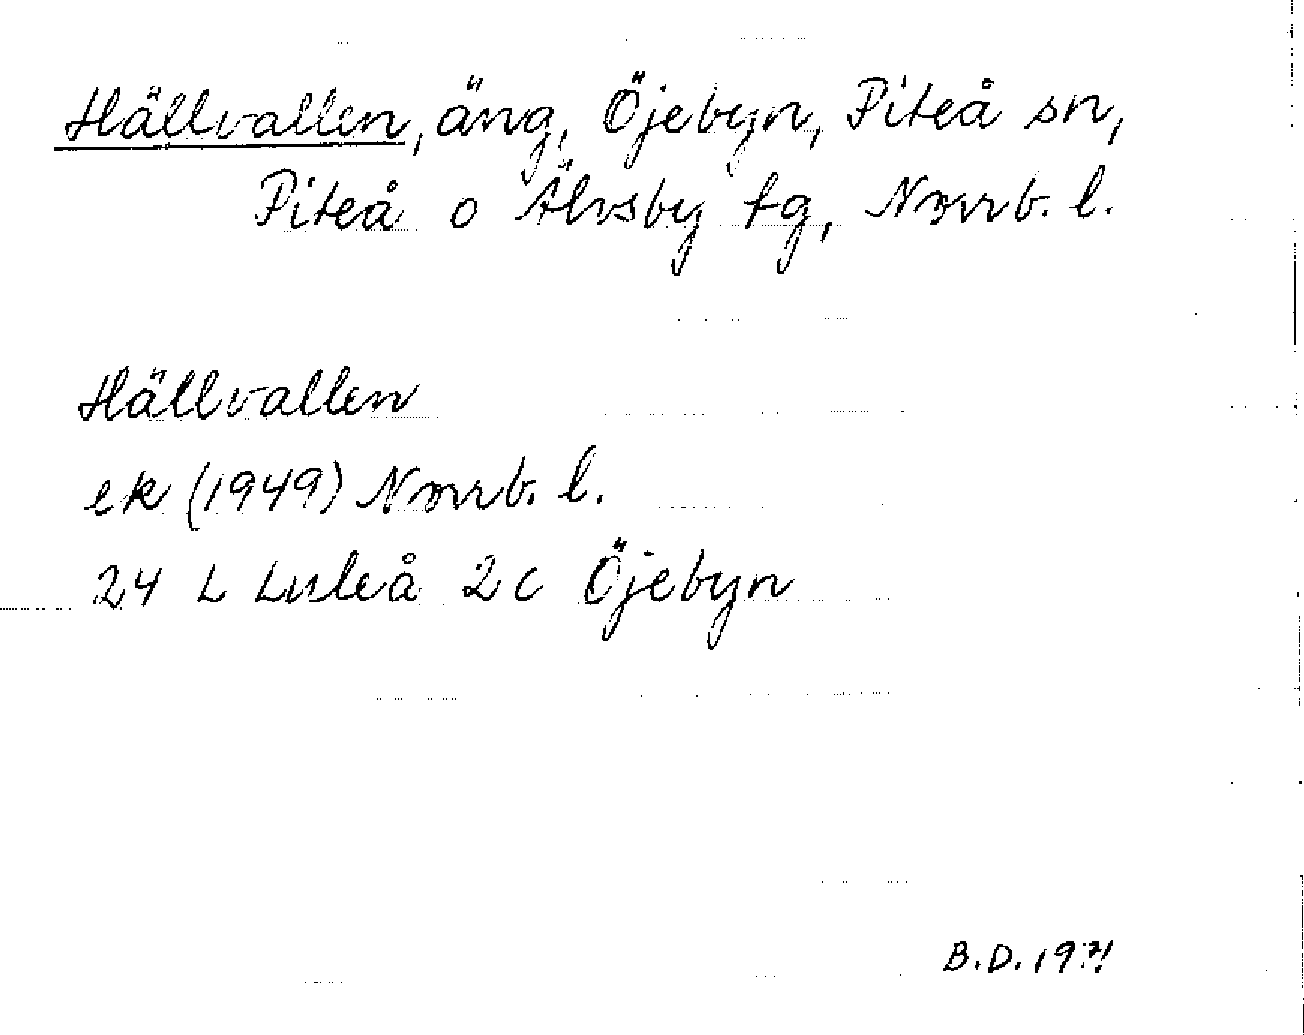 Hällvallen, äng, Öjebyn, Piteå sn,
Piteå o Älvsby tg, Norrb. l.
Hällvallen
ek (1949) Norrb. l.
24 L Luleå 2c Öjebyn
B.D. 1971